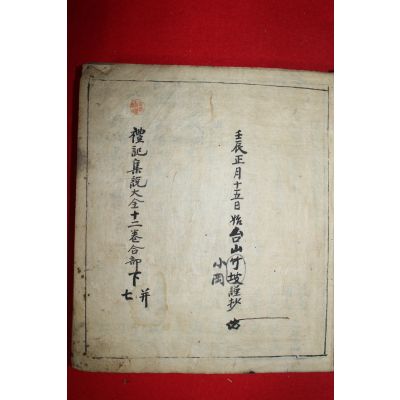 壬辰正月十五日始台山竹坡謹抄
小岡
禮記集說大全十二卷合部下
七 并